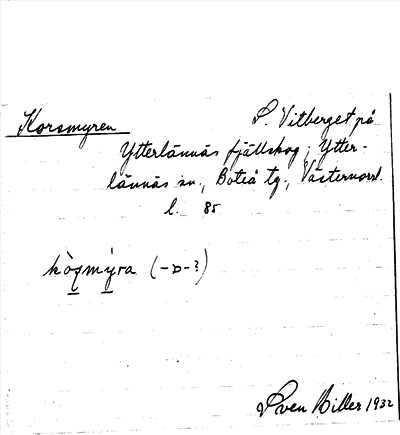 Korsmyren S. Vitberget på
Ytterlännäs fjällskog; Ytter-
lännäs sn., Boteå tg., Västernorrl.
l. 85
(-ɒ-?)
Sven Biller 1932